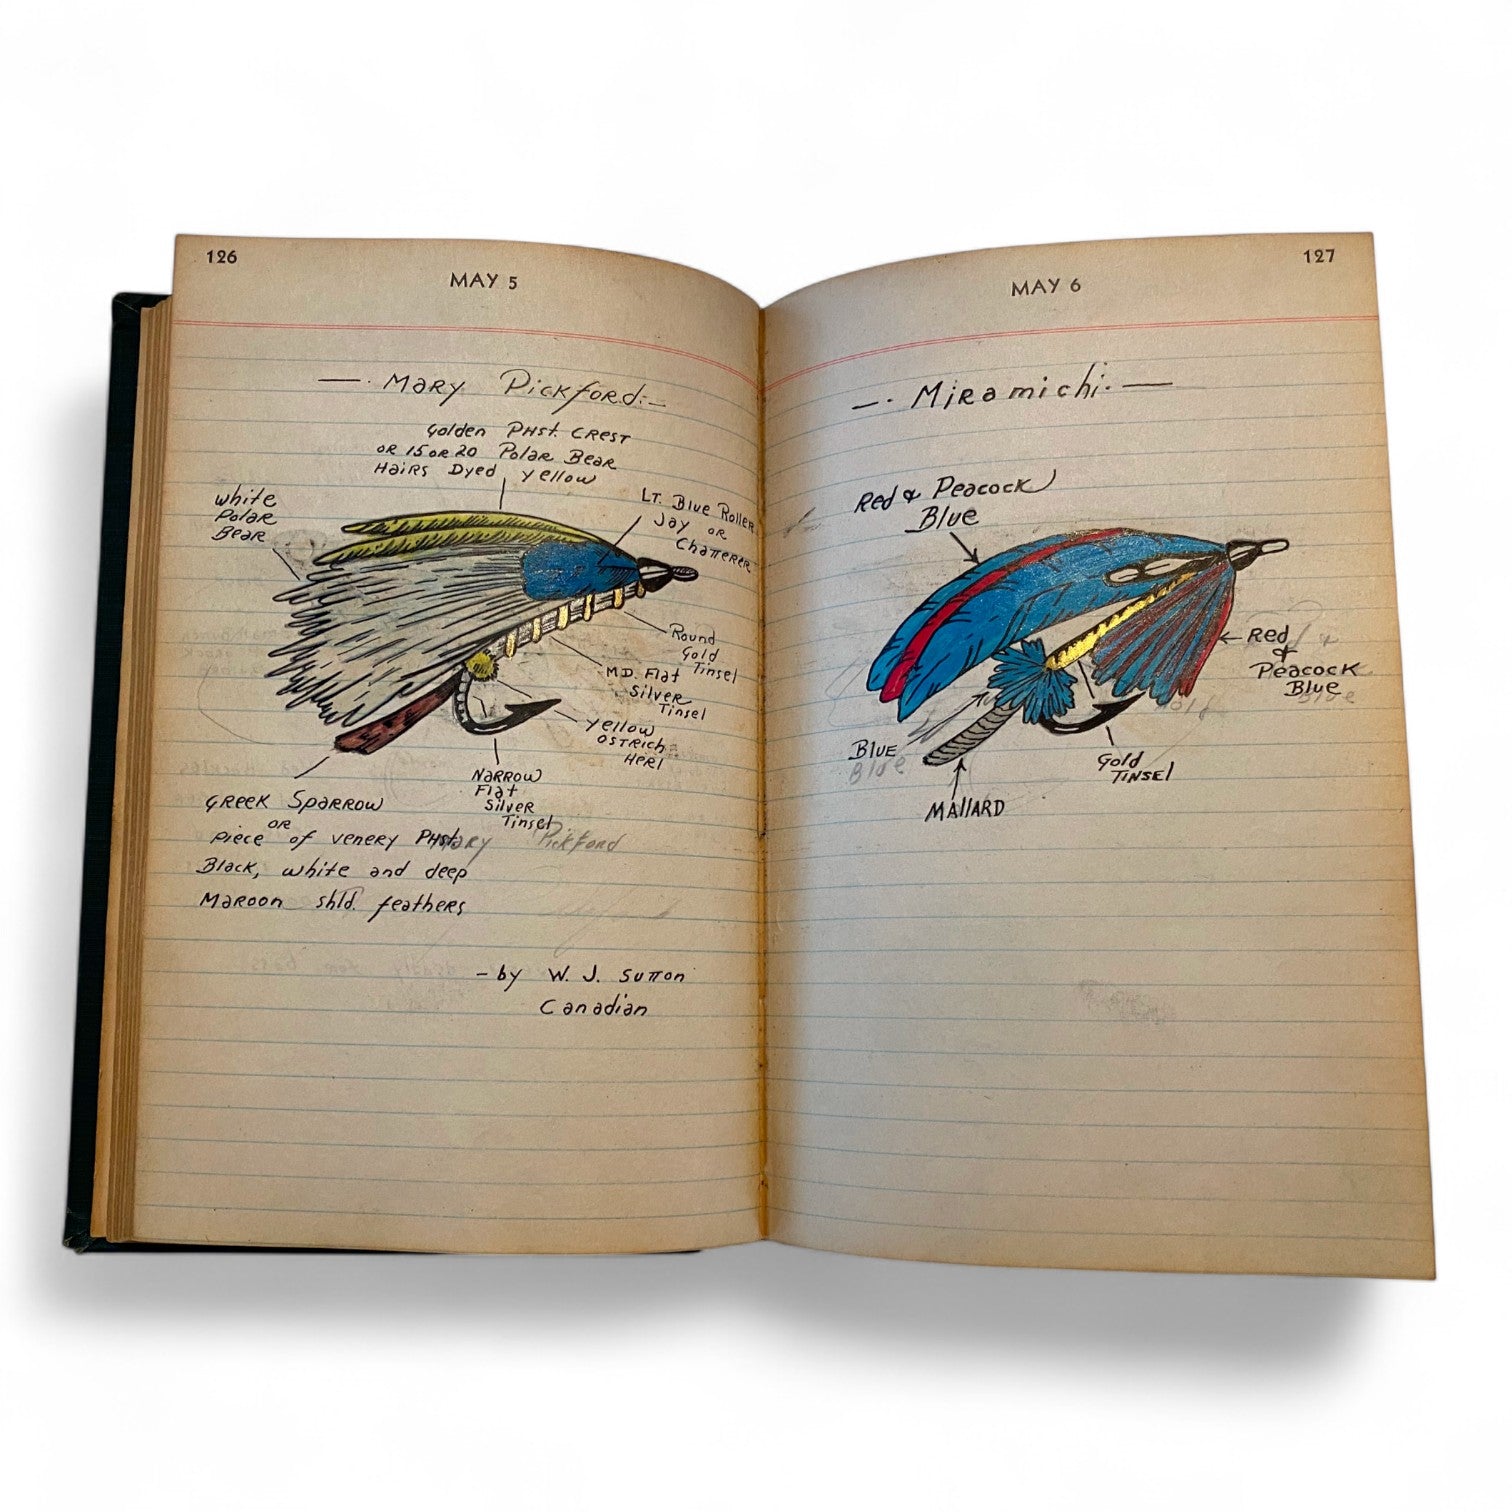 126
MAY 5
Mary Pickford
Golden Phst. Crest
or 15 or 20 Polar Bear
Hairs Dyed Yellow
White
Polar
Bear
Lt. Blue Roller
Jay or
Chatterer
Round
Gold
Tinsel
M.D. Flat
Silver
Tinsel
Yellow
Ostrich
Herl
Narrow
Flat
Silver
Tinsel
Greek Sparrow
or
Piece of Venery Phst.
Black, white and deep
Maroon shld. feathers
Pickford
- by W. J. Sutton
Canadian
127
MAY 6
Miramichi
Red & Peacock
Blue
Red
&
Peacock
Blue
Blue
Blue
Blue
Gold
Tinsel
Mallard